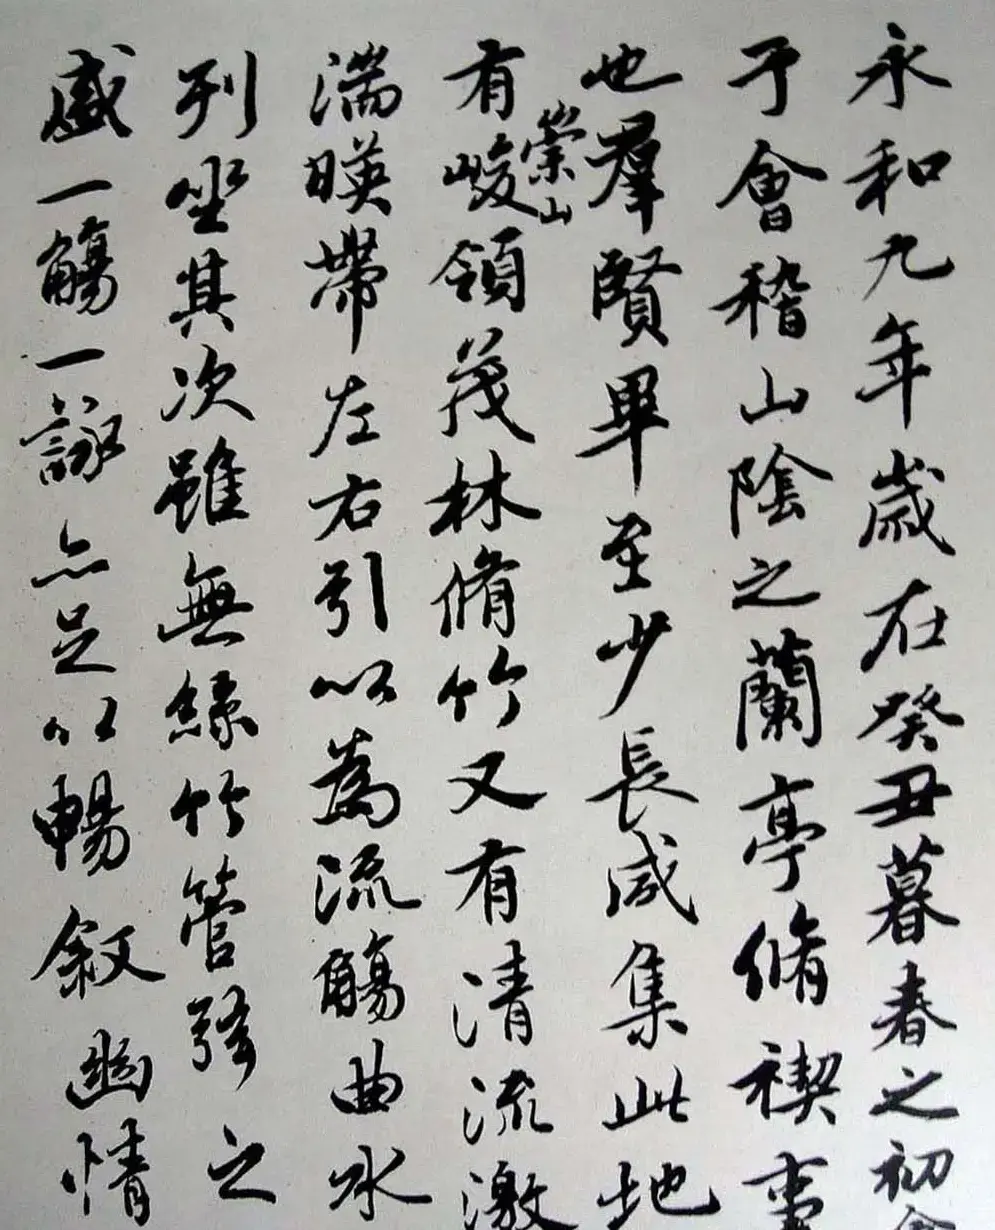 永和九年歲在癸丑暮春之初
于會稽山陰之蘭亭脩禊事
也羣賢畢至少長咸集此地
有崇山峻領茂林脩竹又有清流激
湍暎帶左右引以為流觴曲水
列坐其次雖無絲竹管弦之
盛一觴一詠亦足以暢敘幽情